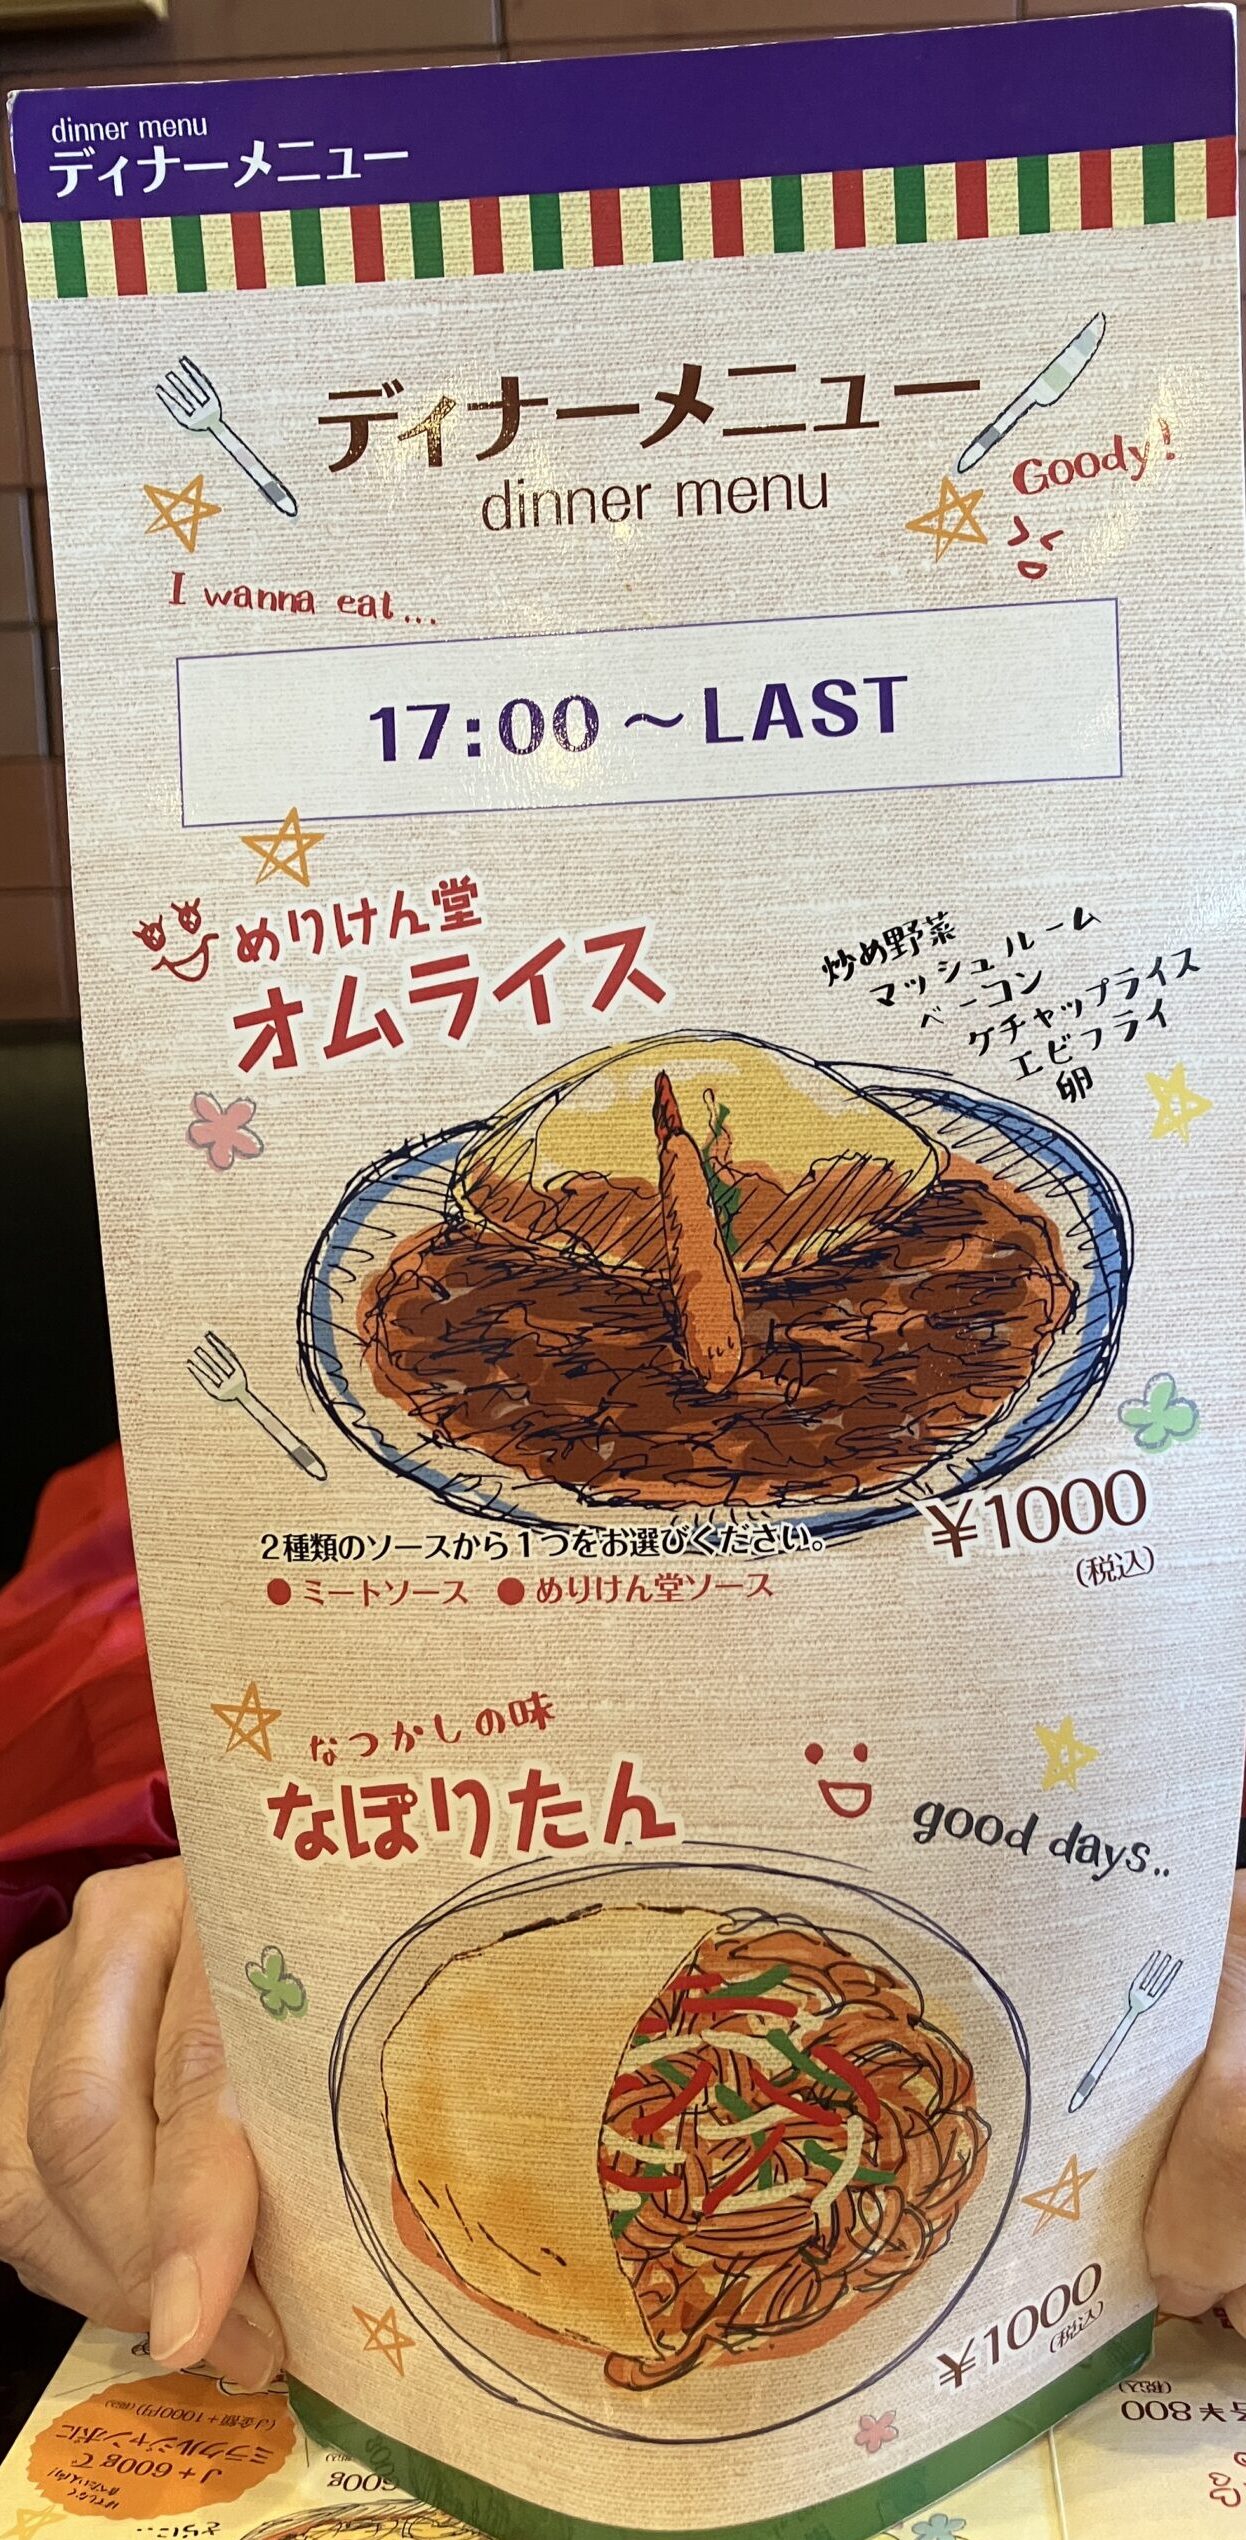 dinner menu
ディナーメニュー
ディナーメニュー
dinner menu
Goody!
I wanna eat...
17:00～LAST
めりけん堂
オムライス
炒め野菜
マッシュルーム
ベーコン
ケチャップライス
エビフライ
卵
¥1000
(税込)
2種類のソースから1つをお選びください。
●ミートソース ●めりけん堂ソース
なつかしの味
なぽりたん
good days..
¥1000
(税込)
J+600gで
ミラクルジャンボに
(J金額+1000円)(税込)
600g
¥800
(税込)